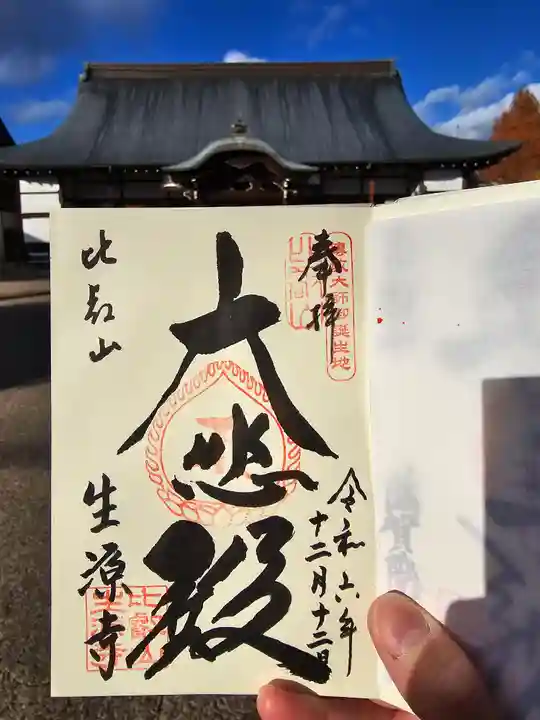 傳教大師御誕生地
奉拝
令和六年
十二月十二日
大悲殿
比叡山
生源寺